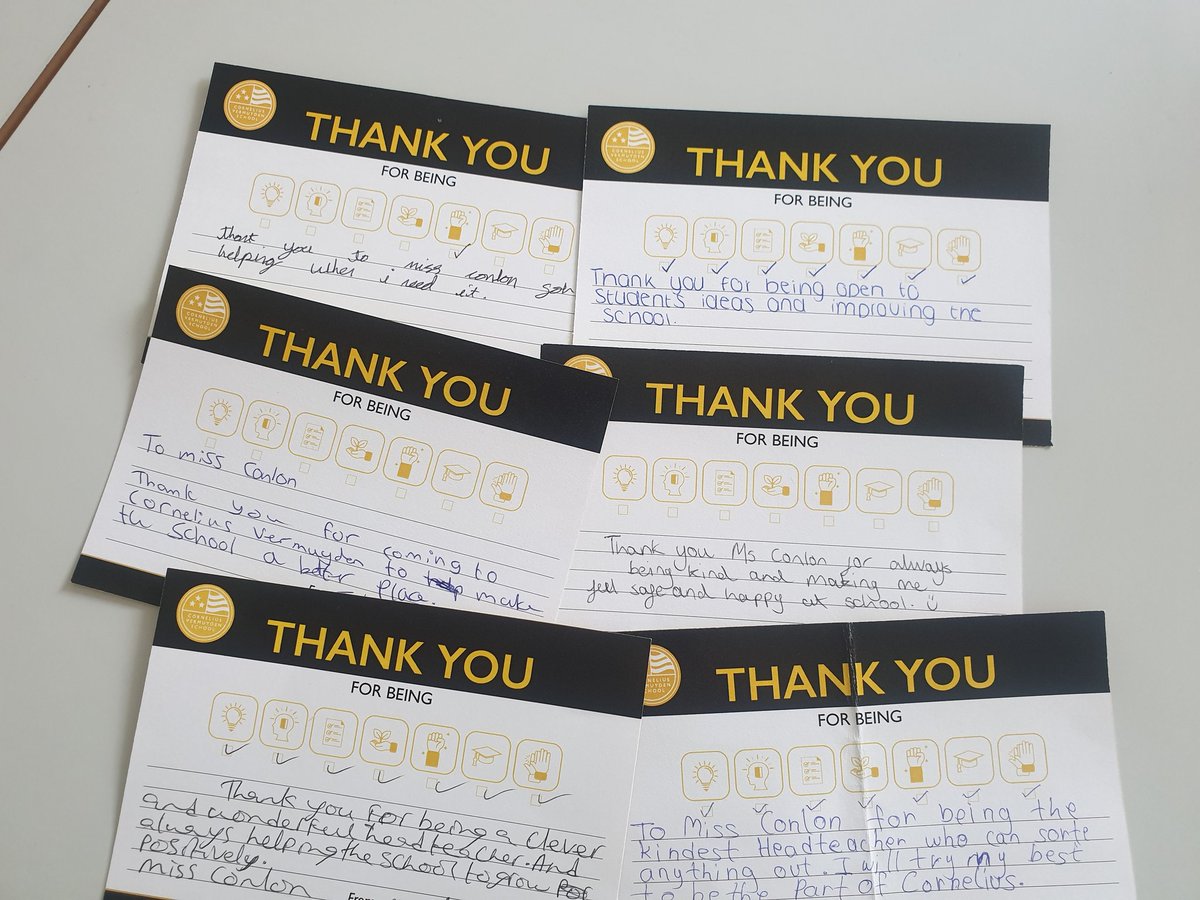 CORNELIUS
VERMUYDEN
SCHOOL
THANK YOU
FOR BEING
thank you to miss conlon
helping when i need it.
CORNELIUS
VERMUYDEN
SCHOOL
THANK YOU
FOR BEING
Thank you for being open to
students ideas and improving the
school.
CORNELIUS
VERMUYDEN
SCHOOL
THANK YOU
FOR BEING
To miss Conlon
Thank you for coming to
Cornelius Vermuyden to make
the School a better place.
THANK YOU
FOR BEING
Thank you Ms Conlon for always
being kind and making me
feel safe and happy at school.
CORNELIUS
VERMUYDEN
SCHOOL
THANK YOU
FOR BEING
Thank you for being a clever
and wonderful headteacher. And
always helping the school to grow
positively.
miss Conlon
From
THANK YOU
FOR BEING
To Miss Conlon for being the
kindest Headteacher who can sorte
anything out. I will try my best
to be the Part of Cornelius.